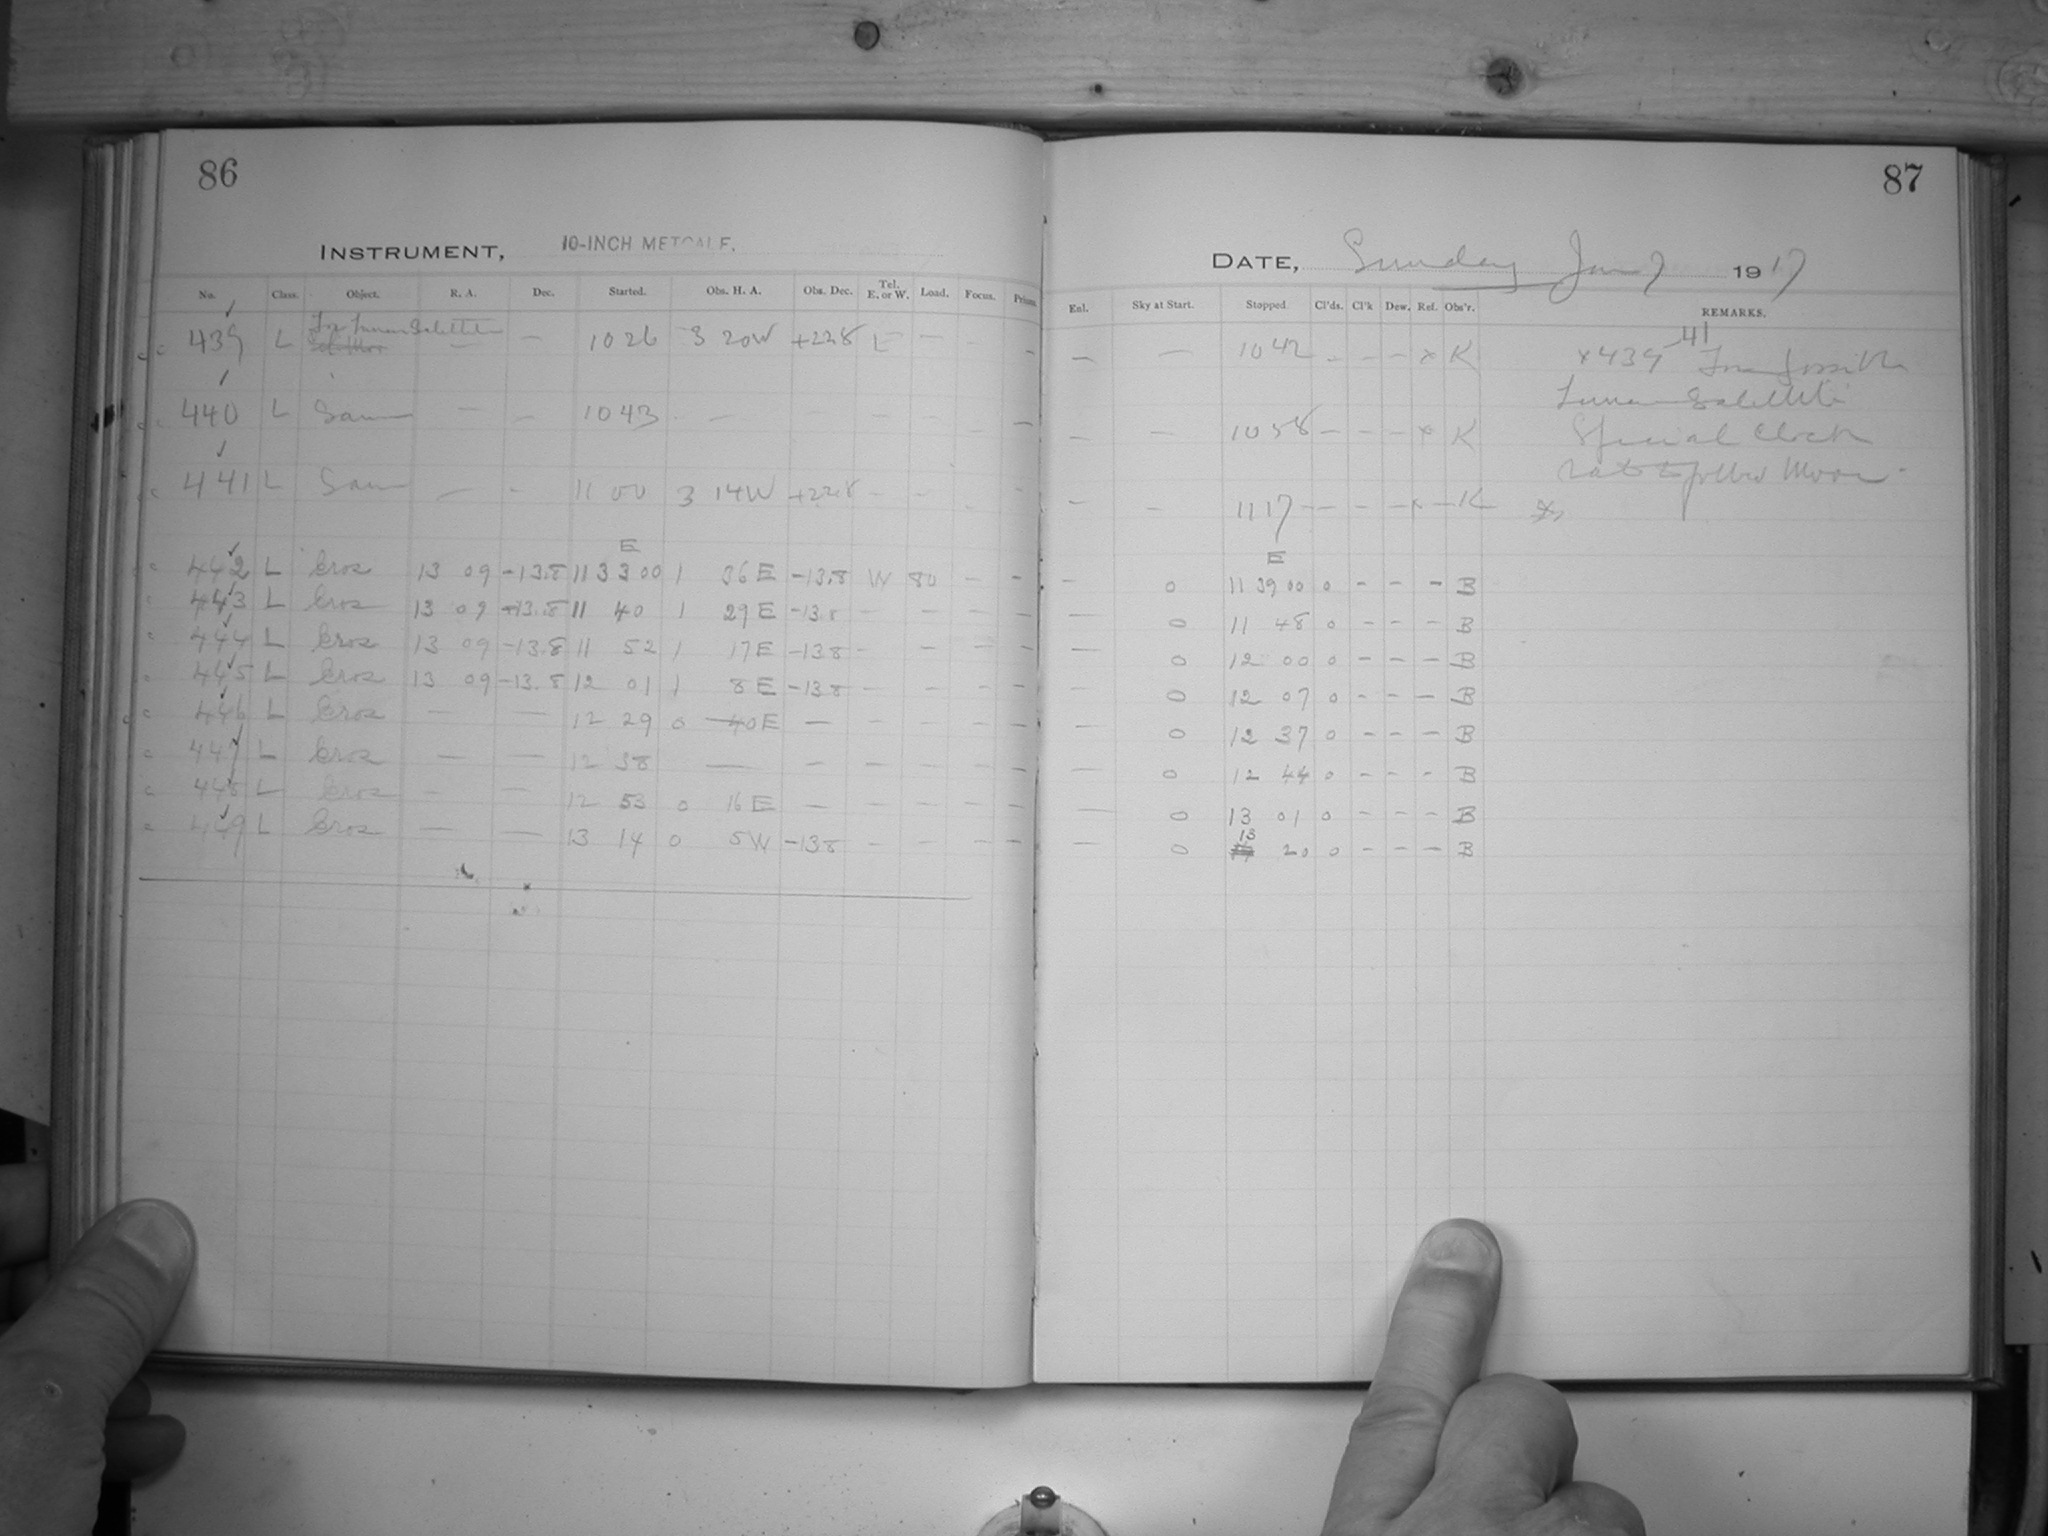 86
INSTRUMENT, 10-INCH METCALF.
No. Class. Object. R. A. Dec. Started. Obs. H. A. Obs. Dec. Tel. E. or W. Load. Focus. Prism.
439 L For Lunar Satellite — — 10 26 3 20W +22.8 E — — —
440 L Same — — 10 43 — — — — — —
441 L Same — — 11 00 3 14W +22.8 — — — —
E
442 L Eros 13 09 -13.8 11 33 00 1 36 E -13.8 W 80 — —
443 L Eros 13 09 -13.8 11 40 1 29 E -13.8 — — — —
444 L Eros 13 09 -13.8 11 52 1 17 E -13.8 — — — —
445 L Eros 13 09 -13.8 12 01 1 8 E -13.8 — — — —
446 L Eros — — 12 29 0 40 E — — — — —
447 L Eros — — 12 38 — — — — — —
448 L Eros — — 12 53 0 16 E — — — — —
449 L Eros — — 13 14 0 5W -13.8 — — — —
87
DATE, Sunday Jan 7 1917
Enl. Sky at Start. Stopped. Cl'ds. Cl'k Dew. Ref. Obs'r. REMARKS.
— — 10 42 — — — x K x 439-41 For possible
Lunar Satellite
— — 10 58 — — — x K Special Clock
rate to follow Moon
— — 11 17 — — — x — K
E
— 0 11 39 00 0 — — — B
— 0 11 48 0 — — — B
— 0 12 00 0 — — — B
— 0 12 07 0 — — — B
— 0 12 37 0 — — — B
— 0 12 44 0 — — — B
— 0 13 01 0 — — — B
— 0 13 20 0 — — — B